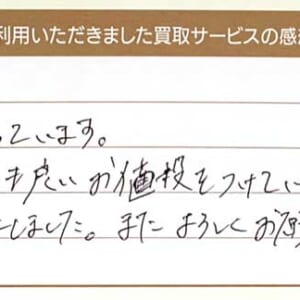 利用いただきました買取サービスの感
っています。
も良いお値段をつけてい
たしました。またよろしくお願